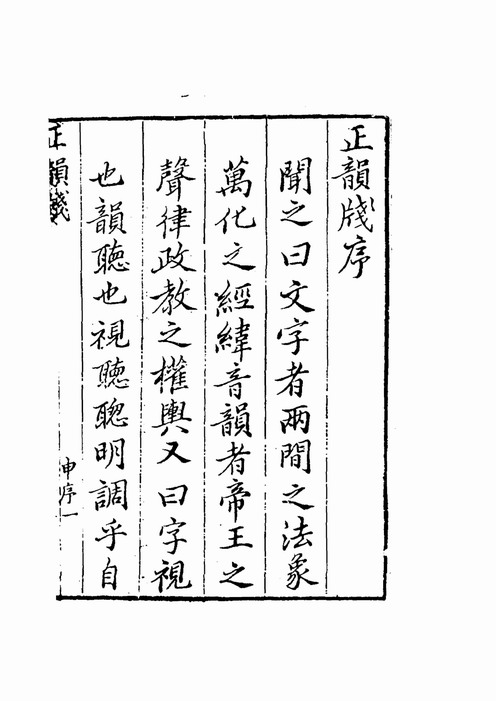 正韻牋序
聞之曰文字者兩間之法象
萬化之經緯音韻者帝王之
聲律政教之權輿又曰字視
也韻聽也視聽聰明調乎自
正韻箋
申序一